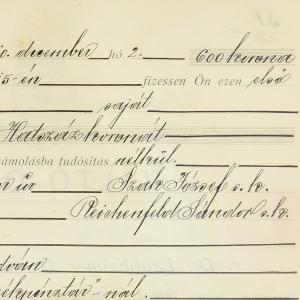 0. december hó 2. 600 korona
5-én fizessen Ön ezen első
saját
Hatszáz koronát
számolásba tudósítás nélkül.
Szak József s.k.
Reichenfeld Sándor s.k.
István
ékpénztár"-nál.